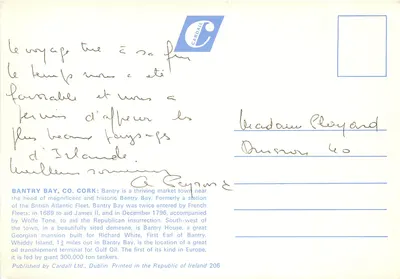 CARDALL
le voyage tire à sa fin
le temps nous a été
favorable et nous a
permis d'apprécier les
plus beaux paysages
d'Irlande.
Meilleurs souvenirs
Madame
Division 40
BANTRY BAY, CO. CORK: Bantry is a thriving market town near
the head of magnificent and historic Bantry Bay. Formerly a station
of the British Atlantic Fleet. Bantry Bay was twice entered by French
Fleets: in 1689 to aid James II, and in December 1796, accompanied
by Wolfe Tone, to aid the Republican Insurrection. South-west of
the town, in a beautifully sited demesne, is Bantry House, a great
Georgian mansion built for Richard White, First Earl of Bantry.
Whiddy Island, 1½ miles out in Bantry Bay, is the location of a great
oil transhipment terminal for Gulf Oil. The first of its kind in Europe,
it is fed by giant 300,000 ton tankers.
Published by Cardall Ltd., Dublin. Printed in the Republic of Ireland 206